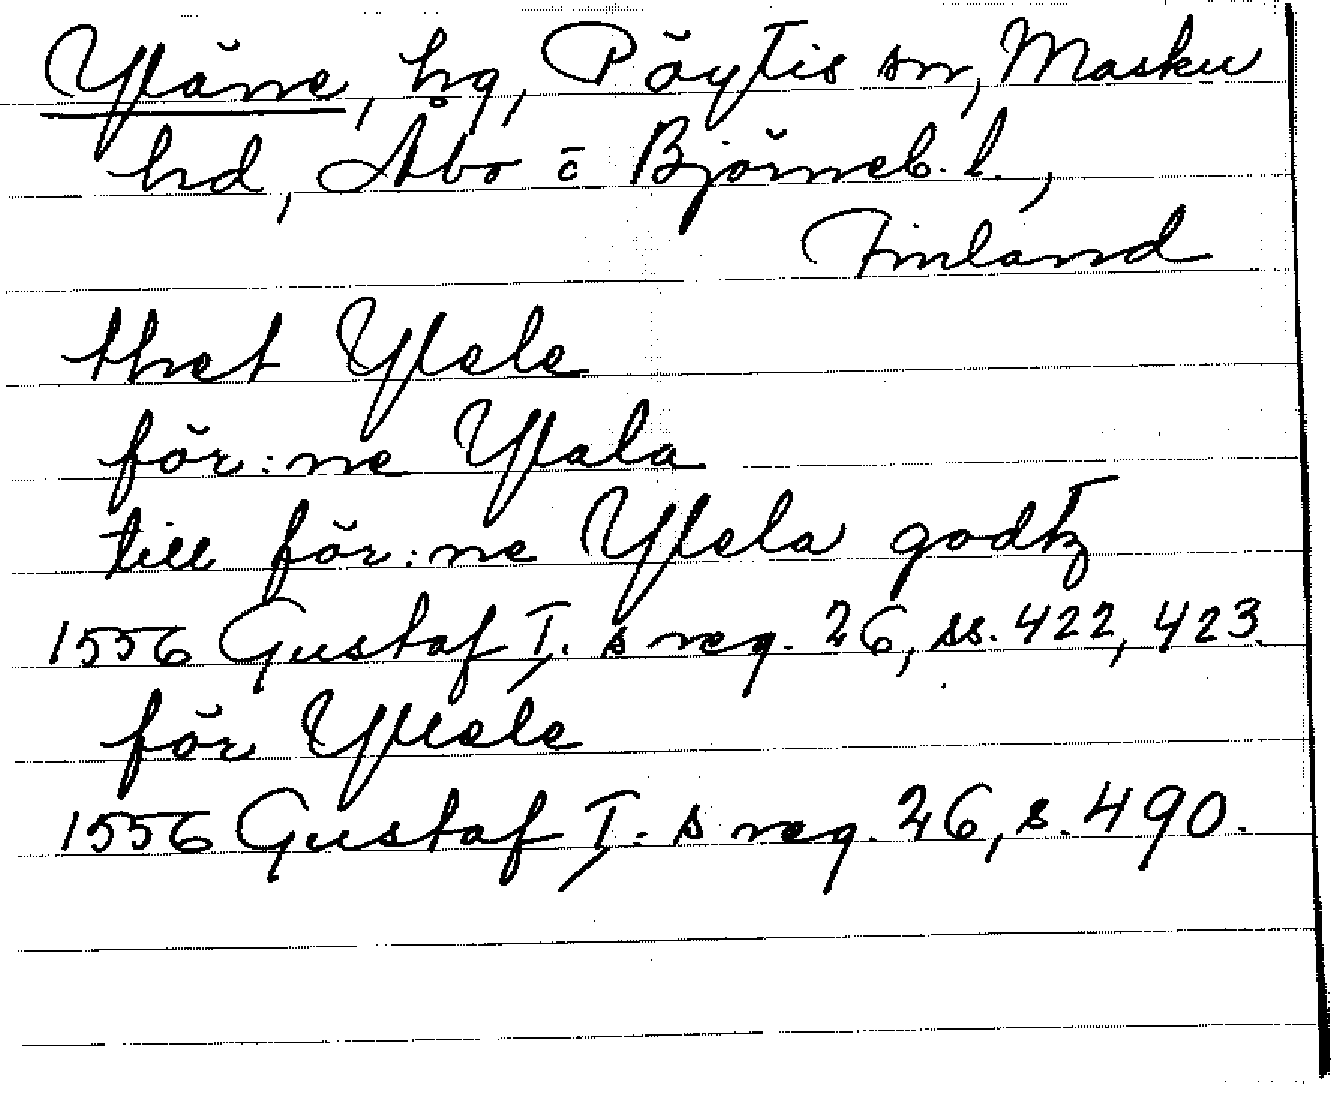 Yläne, hg, Pöytis sn, Masku
hd, Åbo o Björneb. l.,
Finland
thet Ylele
för:ne Ylala
till för:ne Ylela godtz
1556 Gustaf I:s reg. 26, ss. 422, 423.
för Yllele
1556 Gustaf I:s reg. 26, s. 490.